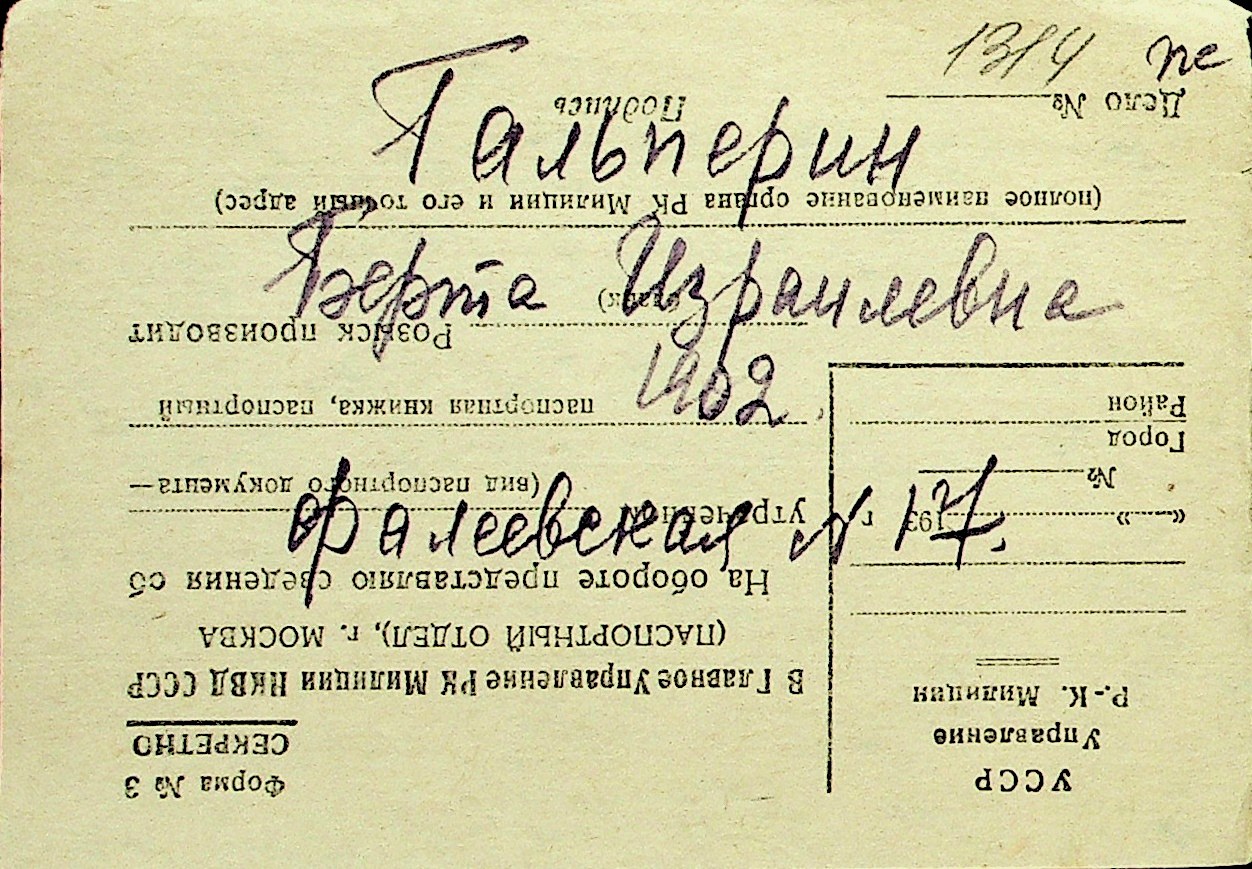 1314 пс
Гальперин
Берта Израилевна
1902.
Фалеевская N 17.
Форма № 3
СЕКРЕТНО
В Главное Управление РК Милиции НКВД СССР
(ПАСПОРТНЫЙ ОТДЕЛ), г. МОСКВА
На обороте представляю сведения об
утраченном
(вид паспортного документа—
паспортная книжка, паспорт, паспортный
бланк)
Розыск производит
(полное наименование органа РК Милиции и его точный адрес)
Подпись
УССР
Управление
Р.-К. Милиции
« » 193 г.
№
Город
Район
Дело №